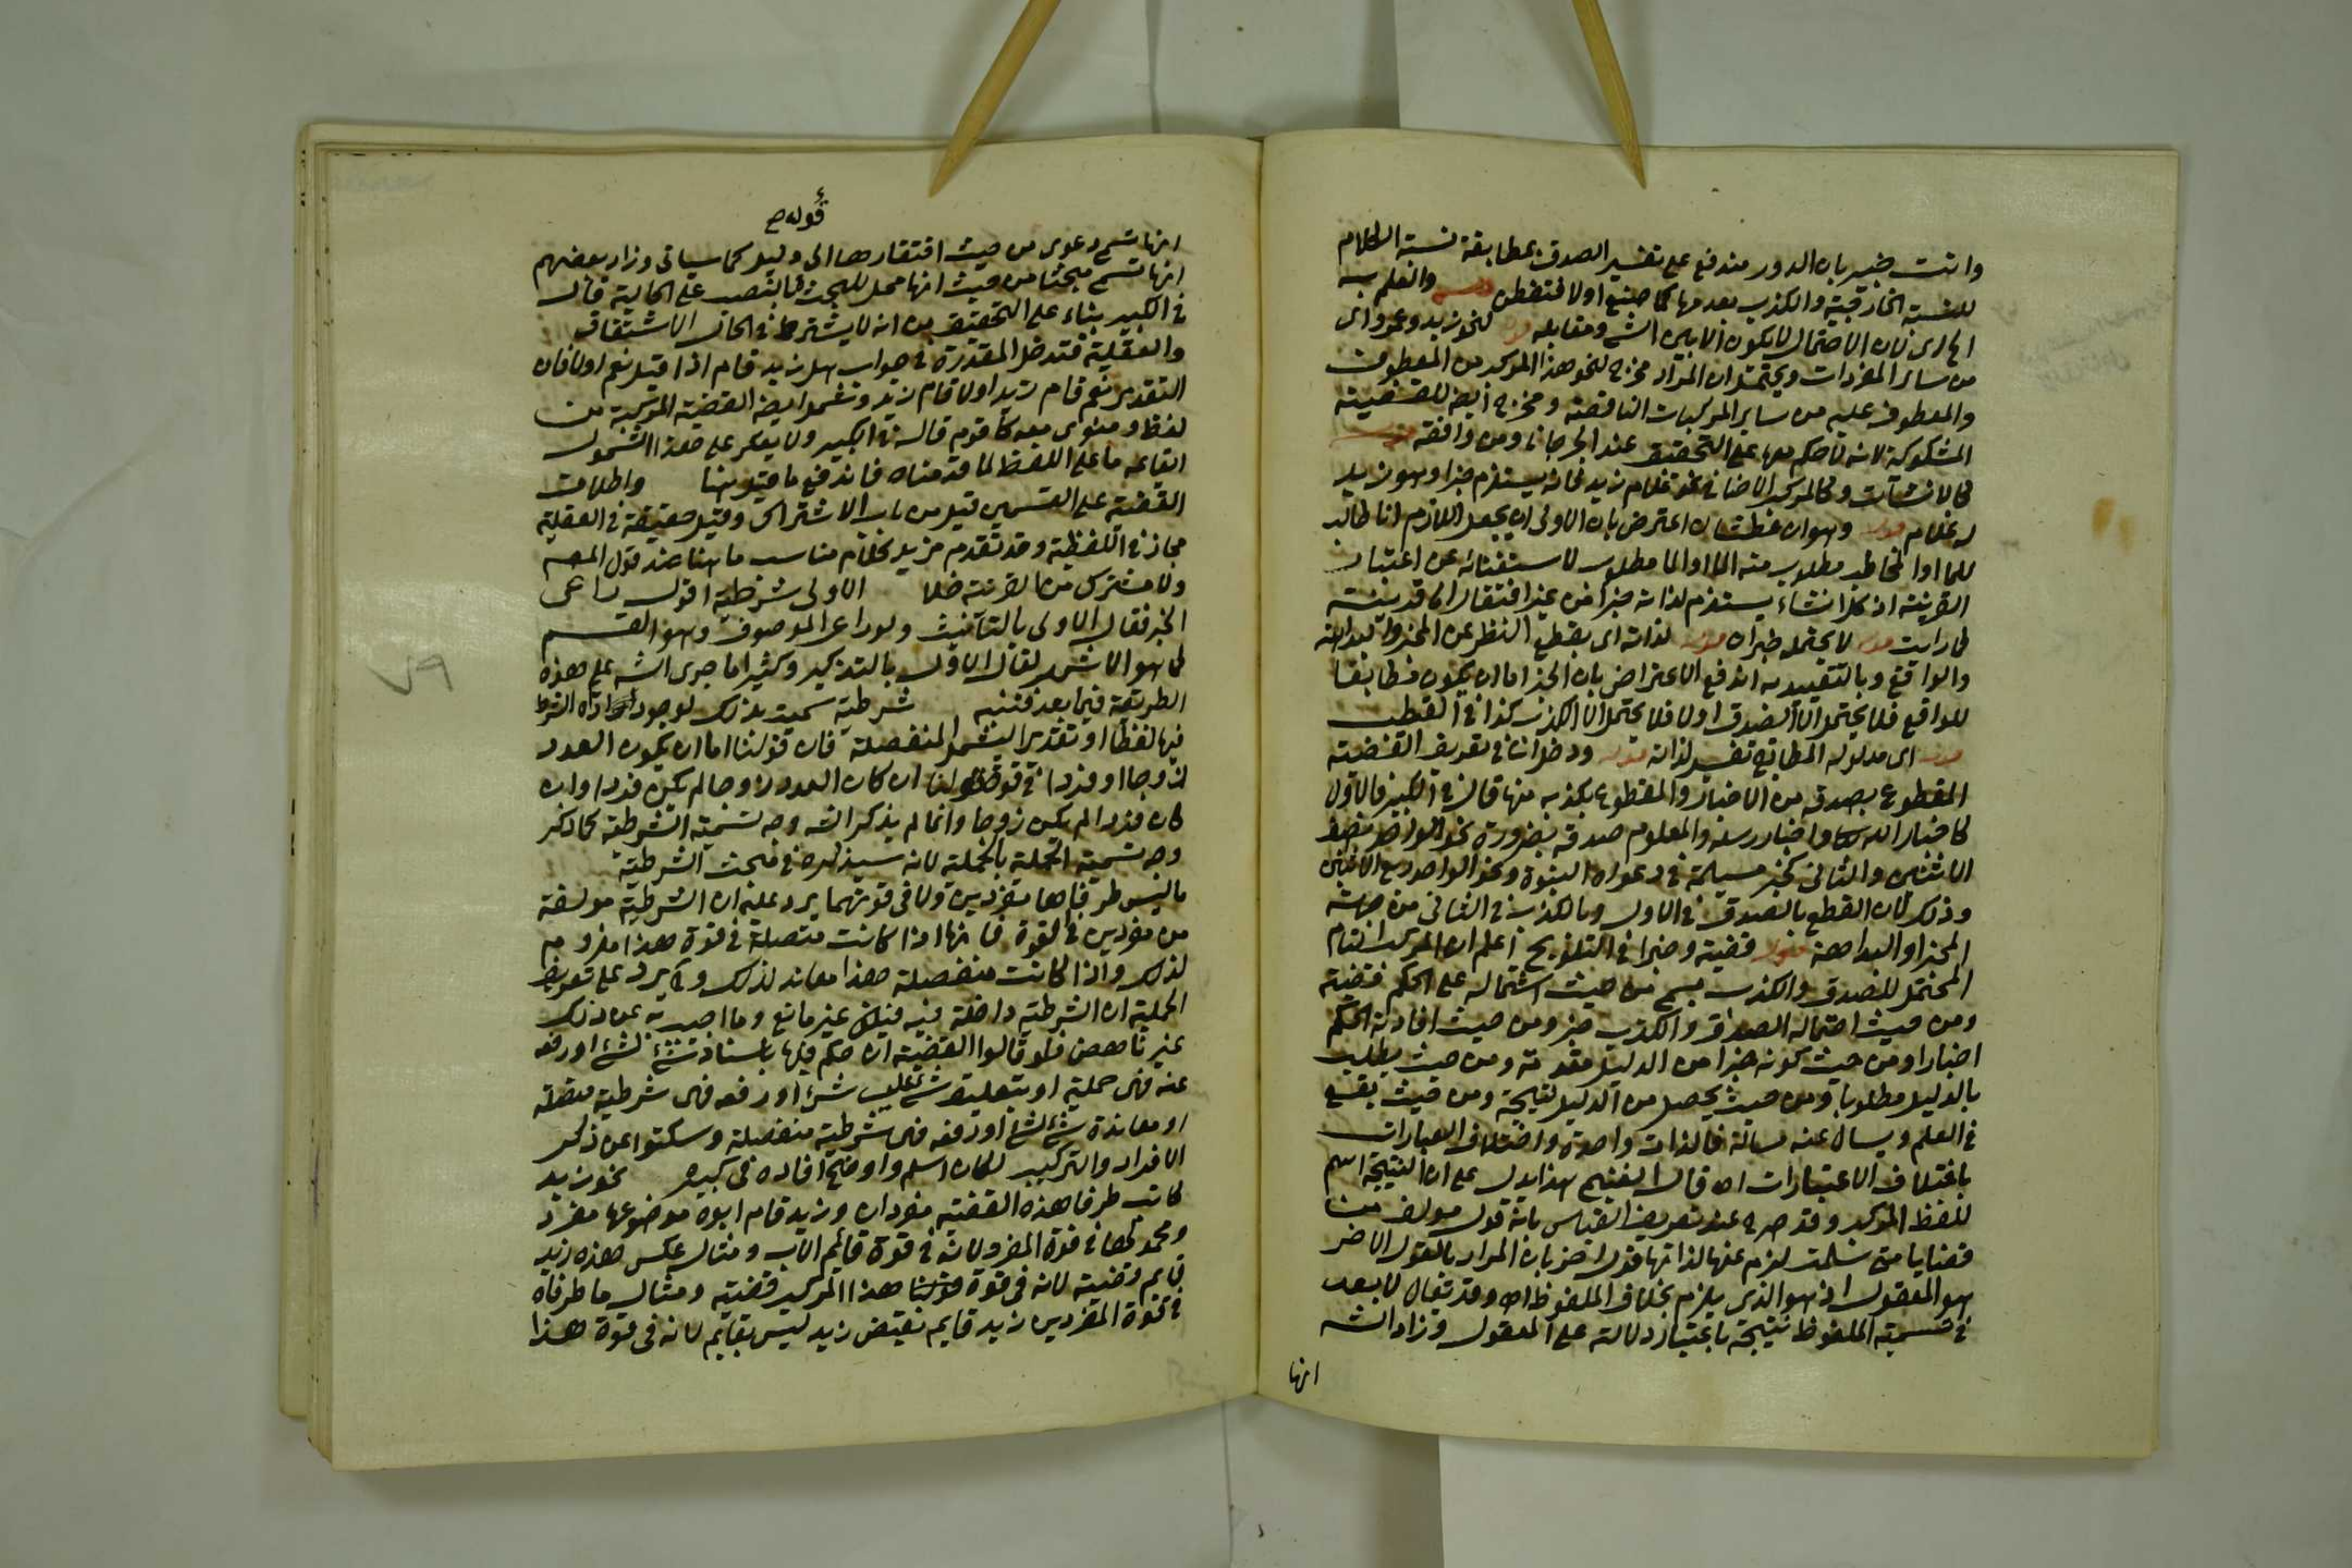 وانت خبير بان الدور مندفع على تفسير الصدق بمطابقة نسبة الكلام
للنسبة الخارجية والكذب بعدمها كما صنع اولا فتفطن والعلم به
لان الاحتمال لا يكون الا بين الشي ومقابله قوله لنحو زيد وعمرو اى
من ساير المفردات ويحتمل ان المراد مخرج لنحو هذا المركب من المعطوف
والمعطوف عليه من ساير المركبات الناقصة ومخرج ايضا للقضية
المشكوكة لانه لا حكم معها على التحقيق عند الجرجانى ومن وافقه قوله
كالانشآت وكالمركب الاضافى نحو غلام زيد فانه يستلزم خبرا وهو زيد
له غلام قوله وهو ان عطشان اعترض بان الاولى ان يجعل اللازم انا طالب
للماء او المخاطب مطلوب منه الماء او الماء مطلوب لاستغنائه عن اعتبار
القرينة اذ كل انشاء يستلزم لذاته خبرا من غير افتقار الى قرينة
كما رايت قوله لا يحتمل خبراه قوله لذاته اى بقطع النظر عن المخبر والبداهة
والواقع وبالتقييد به اندفع الاعتراض بان الخبر اما ان يكون مطابقا
للواقع فلا يحتمل الا الصدق اولا فلا يحتمل الا الكذب كذا فى القطب
قوله اى مدلوله المطابقى تفسير لذاته قوله ودخل اثنا فى تعريف القضية
المقطوع بصدقه من الاخبار والمقطوع بكذبه منها قال فى الكبير فالاول
كاخبار الله واخبار رسله والمعلوم صدقه بضرورة نحو الواحد نصف
الاثنين والثانى كخبر مسيلمة فى دعواه النبوة ونحو الواحد ربع الاثنين
وذلك لان القطع بالصدق فى الاول وبالكذب فى الثانى من جهة
المخبر او البداهة قوله قضية وخبرا فى التلويح اعلم ان المركب التام
المحتمل للصدق والكذب يسمى من حيث اشتماله على الحكم قضية
ومن حيث احتماله الصدق والكذب خبر ومن حيث افادته الحكم
اخبارا ومن حيث كونه جزا من الدليل مقدمة ومن حيث يطلب
بالدليل مطلوبا ومن حيث يحصل من الدليل نتيجة ومن حيث يقع
فى العلم ويسال عنه مسالة فالذات واحدة واختلاف العبارات
باختلاف الاعتبارات اه قال الغنيمى هذا يدل على ان النتيجة اسم
للفظ المركب وقد صرح عند تعريف القياس بانه قول مولف من
قضايا متى سلمت لزم عنها لذاتها قول اخر بان المراد بالقول الاخر
هو المعقول اذ هو الذى يلزم بخلاف الملفوظ اه وقد يقال لا بعد
فى تسمية الملفوظ نتيجة باعتبار دلالته على المعقول وزاد الشه
انها
قوله ح
انها تسمى دعوى من حيث افتقارها الى دليل كما سياتى وزاد بعضهم
انها تسمى مبحثا من حيث انها محل للبحث بالنصب على الحالية قال
فى الكبير بناء على التحقيق من انه لا يشترط فى الحال الاشتقاق
والعقلية فتدخل المقدرة فى جواب هل زيد قام اذا قيل نعم اولا فان
التقدير نعم قام زيد اولا قام زيد وتشمل ايضا القضية المركبة من
لفظ ومنوى معه كاقوم قاله فى الكبير ولا يعكر على هذا الشمول
ايقاعه ما على اللفظ لما قدمناه فاندفع ما قيل هنا واطلاق
القضية على القسمين قيل من باب الاشتراك وقيل حقيقة فى العقلية
مجاز فى اللفظية وقد تقدم مزيد كلام مناسب ما هنا عند قول المصـ
ولا مشترك من القرينة خلا الاولى شرطية اقول راعى
الخبر فقال الاولى بالتانيث ولو راعى الموصوف وهو القسم
كما هو الاشهر لقال الاول بالتذكير وكثيرا ما جرى الشه على هذه
الطريقة فيما بعد فتنبه شرطية سميت بذلك لوجود اداة الشرط
فيها لفظا او تقديرا ليشمل المنفصلة فان قولنا اما ان يكون العدد
زوجا او فردا فى قوة قولنا ان كان العدد زوجا لم يكن فردا وان
كان فردا لم يكن زوجا وانما لم يذكر الشه وجه تسمية الشرطية كما ذكر
وجه تسمية الحملية بالحملية لانه سيذكره فى مبحث الشرطية
ما ليس طرفاها مفردين ولا فى قوتهما يرد عليه ان الشرطية مولفة
من مفردين فى القوة فانها اذا كانت متصلة فى قوة هذا ملزوم
لذلك واذا كانت منفصلة هذا معاند لذلك ولا يرد على تعريف
الحملية ان الشرطية داخلة فيه فيكون غير مانع وما اجيب به عن ذلك
غير ناهض فلو قالوا القضية ان حكم فيها باسناد شئ لشئ او رفعه
عنه فهى حملية او بتعليق شئ على شئ او رفعه فهى شرطية متصلة
او معاندة شئ لشئ او رفعه فهى شرطية منفصلة وسكتوا عن ذكر
الافراد والتركيب لكان اسلم واوضح افاده فى كبيره نحو زيد
كاتب طرفا هذه القضية مفردان وزيد قام ابوه موضوعها مفرد
ومحمولها فى قوة المفرد لانه فى قوة قائم الاب ومثال عكس هذه زيد
قايم قضية لانه فى قوة قولنا هذا المركب قضية ومثال ما طرفاه
فى قوة المفردين زيد قايم نقيض زيد ليس بقايم لانه فى قوة هذا
٧٩